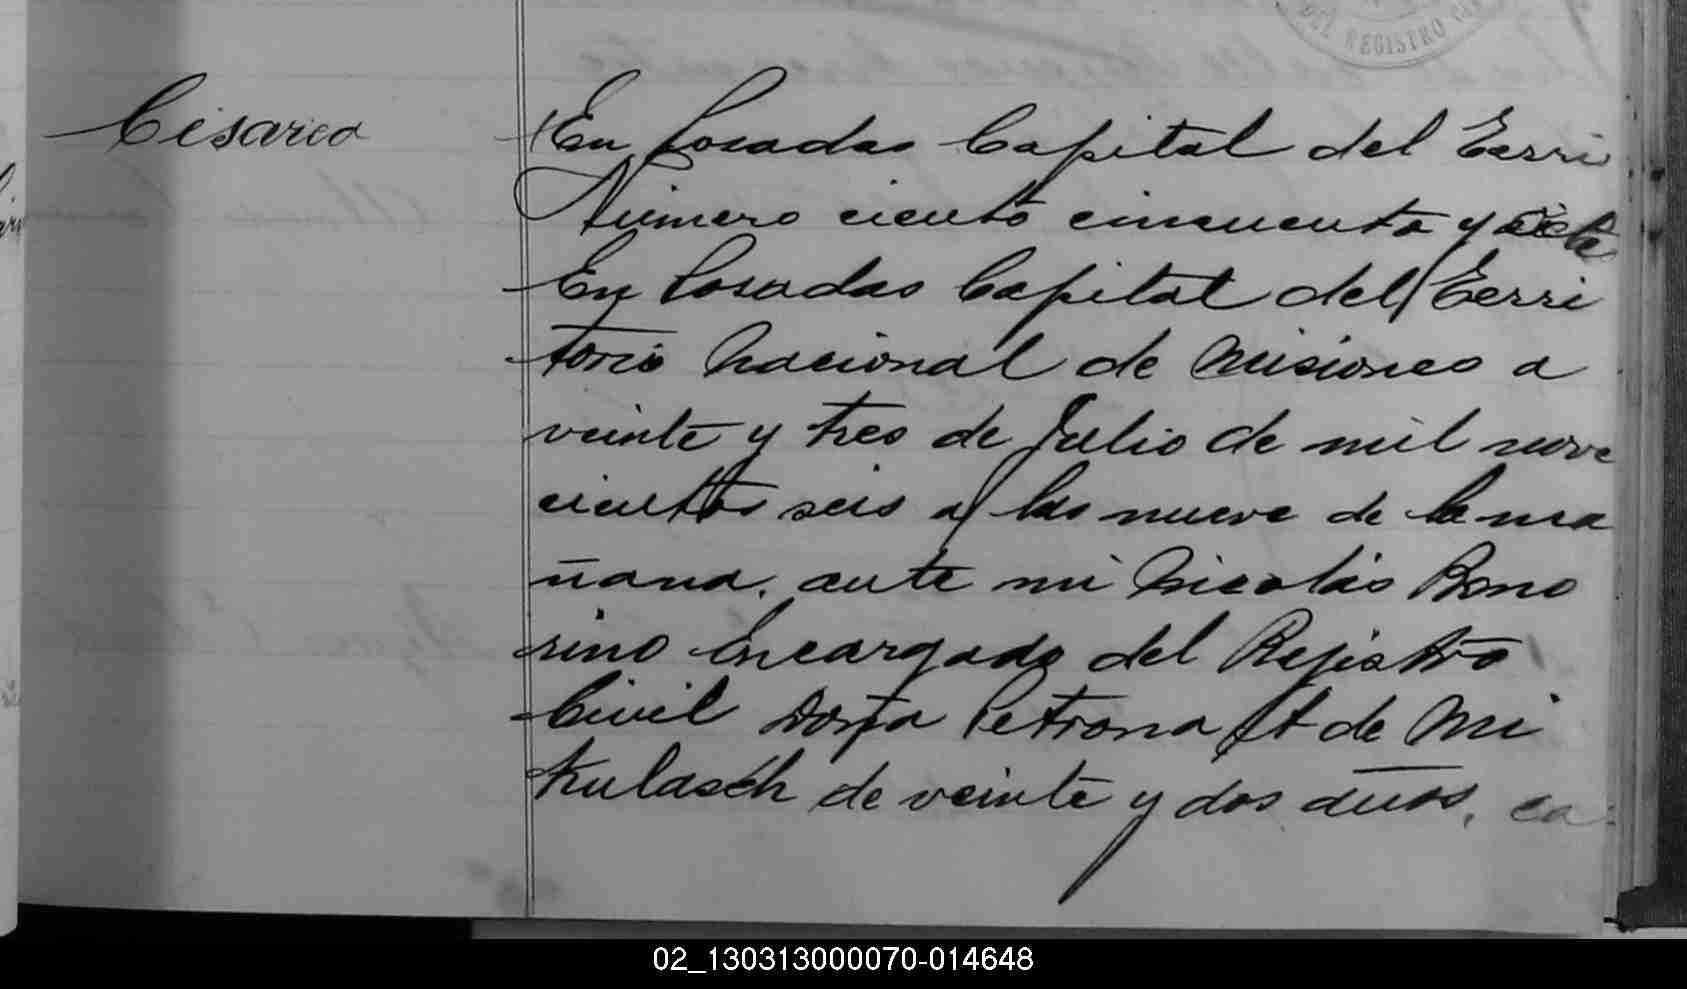 DEL REGISTRO
Cisarea
En Posadas Capital del Terri
Número ciento cincuenta y siete
En Posadas Capital del Terri
torio Nacional de Misiones a
veinte y tres de Julio de mil nove
cientos seis a las nueve de la ma
ñana, ante mi Nicolás Bono
rino Encargado del Rejistro
Civil Doña Petrona A de Mi
kulasch de veinte y dos años, ca
02_130313000070-014648